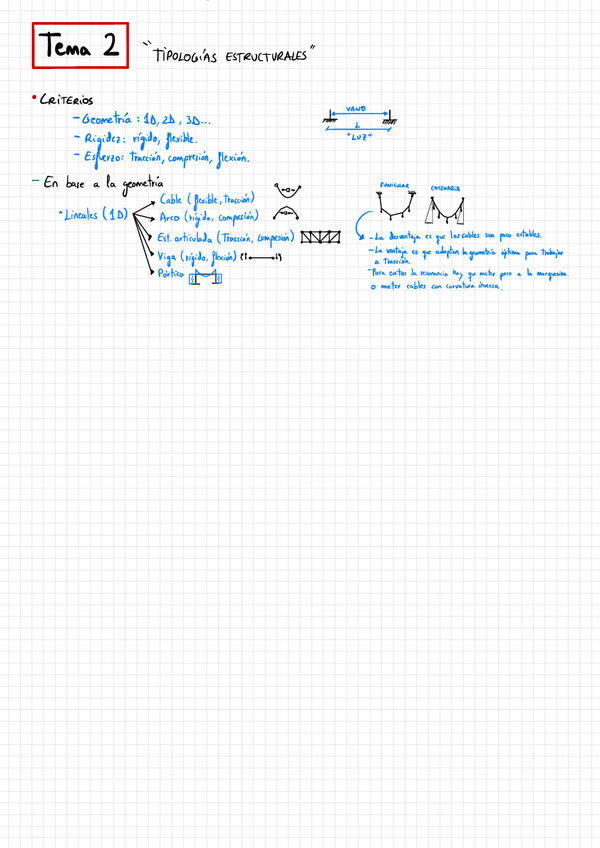 Tema 2
"TIPOLOGÍAS ESTRUCTURALES"
• CRITERIOS
- Geometría: 1D, 2D, 3D...
- Rigidez: rígido, flexible.
- Esfuerzo: Tracción, compresión, flexión.
VANO
L
"LUZ"
- En base a la geometría
• Lineales (1D)
Cable (flexible, tracción)
Arco (rígido, compresión)
Est. articulada (Tracción, compresión)
Viga (rígido, flexión)
Pórtico
FUNICULAR
CATENARIA
- La desventaja es que los cables son poco estables.
- La ventaja es que adoptan la geometría óptima para trabajar
a Tracción.
- Para evitar la resonancia hay que meter peso a la marquesina
o meter cables con curvatura inversa.